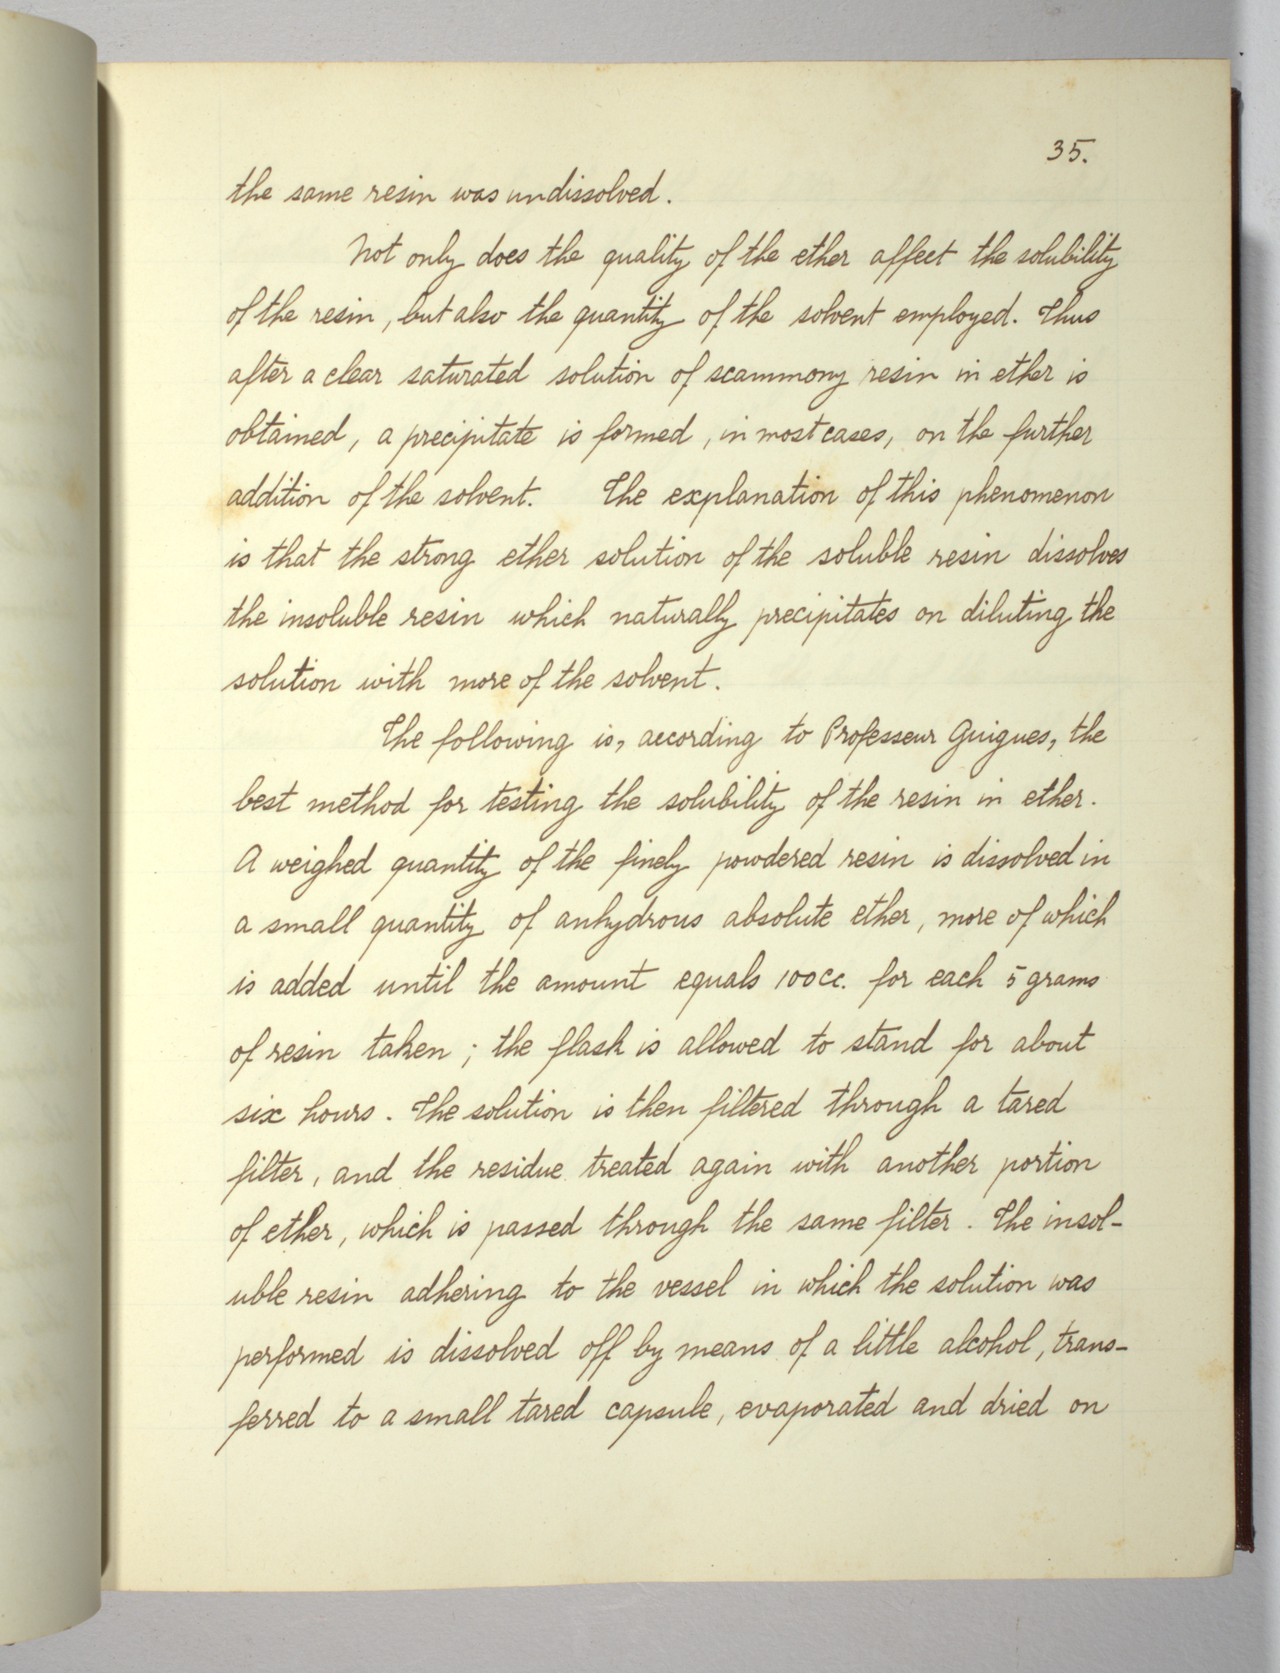 35.
the same resin was undissolved.
Not only does the quality of the ether affect the solubility
of the resin, but also the quantity of the solvent employed. Thus
after a clear saturated solution of scammony resin in ether is
obtained, a precipitate is formed, in most cases, on the further
addition of the solvent. The explanation of this phenomenon
is that the strong ether solution of the soluble resin dissolves
the insoluble resin which naturally precipitates on diluting the
solution with more of the solvent.
The following is, according to Professeur Guigues, the
best method for testing the solubility of the resin in ether.
A weighed quantity of the finely powdered resin is dissolved in
a small quantity of anhydrous absolute ether, more of which
is added until the amount equals 100cc. for each 5 grams
of resin taken; the flask is allowed to stand for about
six hours. The solution is then filtered through a tared
filter, and the residue treated again with another portion
of ether, which is passed through the same filter. The insol-
uble resin adhering to the vessel in which the solution was
performed is dissolved off by means of a little alcohol, trans-
ferred to a small tared capsule, evaporated and dried on